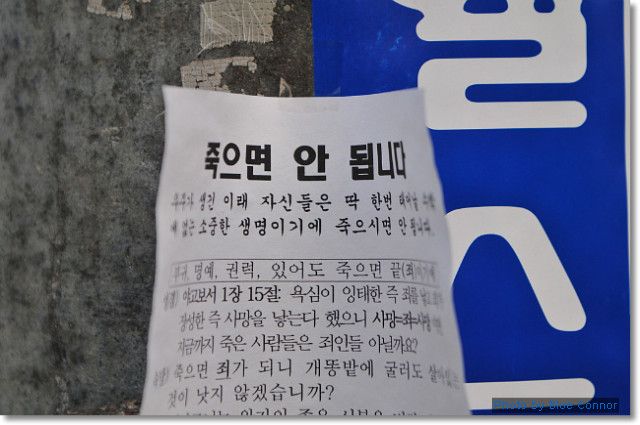 죽으면 안 됩니다
우주가 생긴 이래 자신들은 딱 한번 태어날
에 없는 소중한 생명이기에 죽으시면 안 됩니다.
부귀, 명예, 권력, 있어도 죽으면 끝(죄)
야고보서 1장 15절: 욕심이 잉태한 즉 죄를 낳고
장성한 즉 사망을 낳는다 했으니 사망=죄=사망
지금까지 죽은 사람들은 죄인들 아닐까요?
죽으면 죄가 되니 개똥밭에 굴러도 살아
것이 낫지 않겠습니까?
Photo by Blue Connor